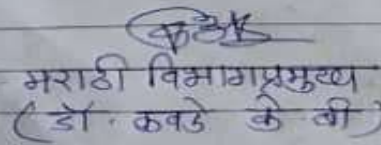 मराठी विभागप्रमुख
(डॉ. कवडे के बी)